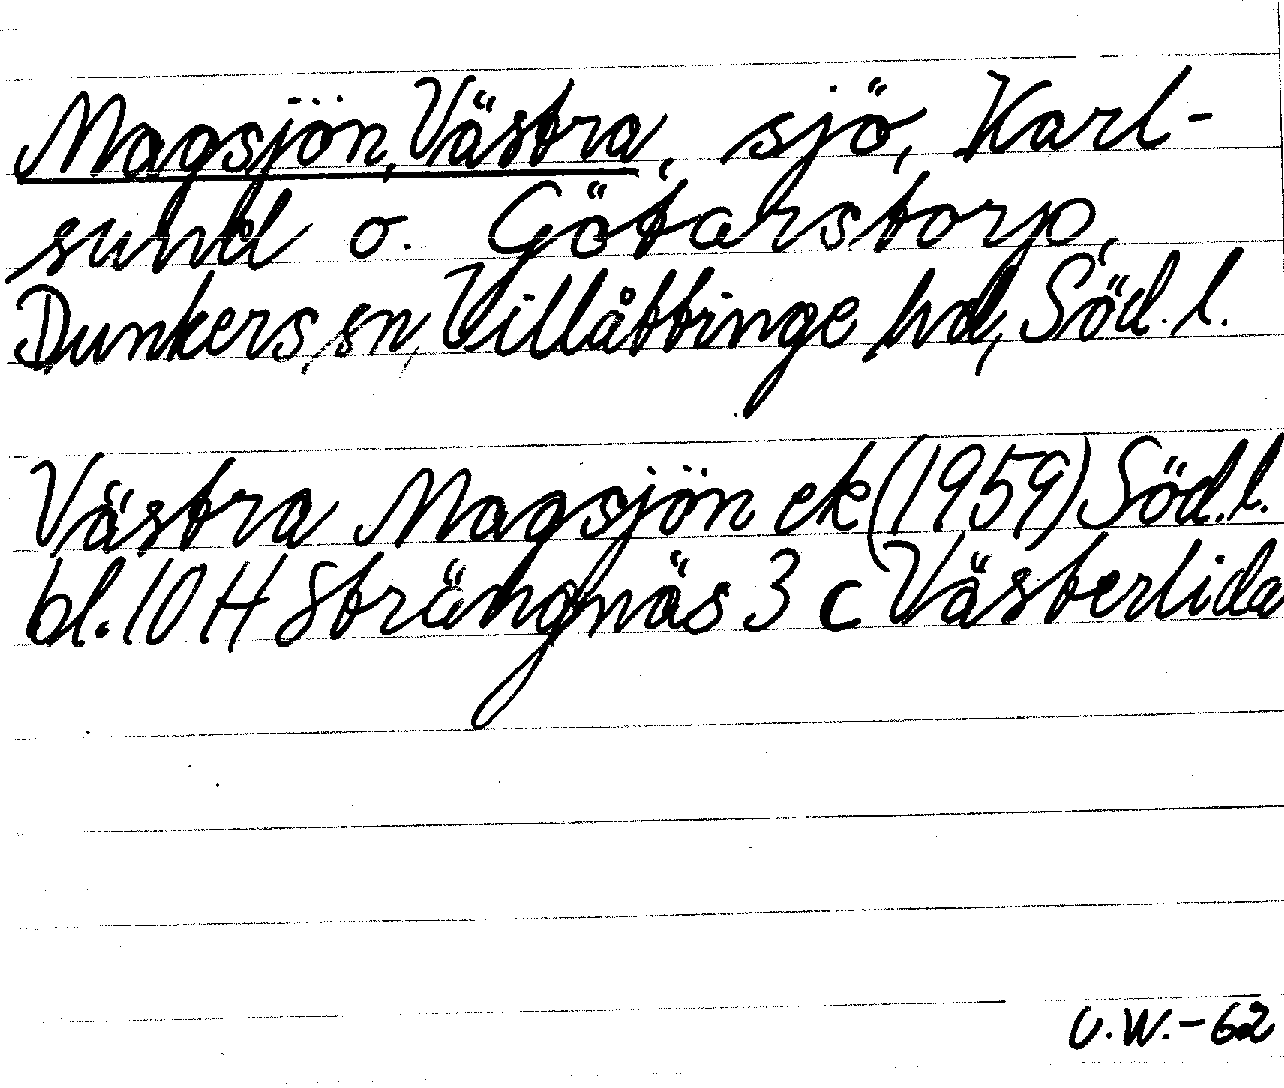 Magsjön, Västra, sjö, Karl-
sund o. Götarstorp,
Dunkers sn, Villåttinge hd, Söd. l.
Västra Magsjön ek (1959) Söd. l.
bl. 10 H Strängnäs 3 c Västerlida
U.W.-62